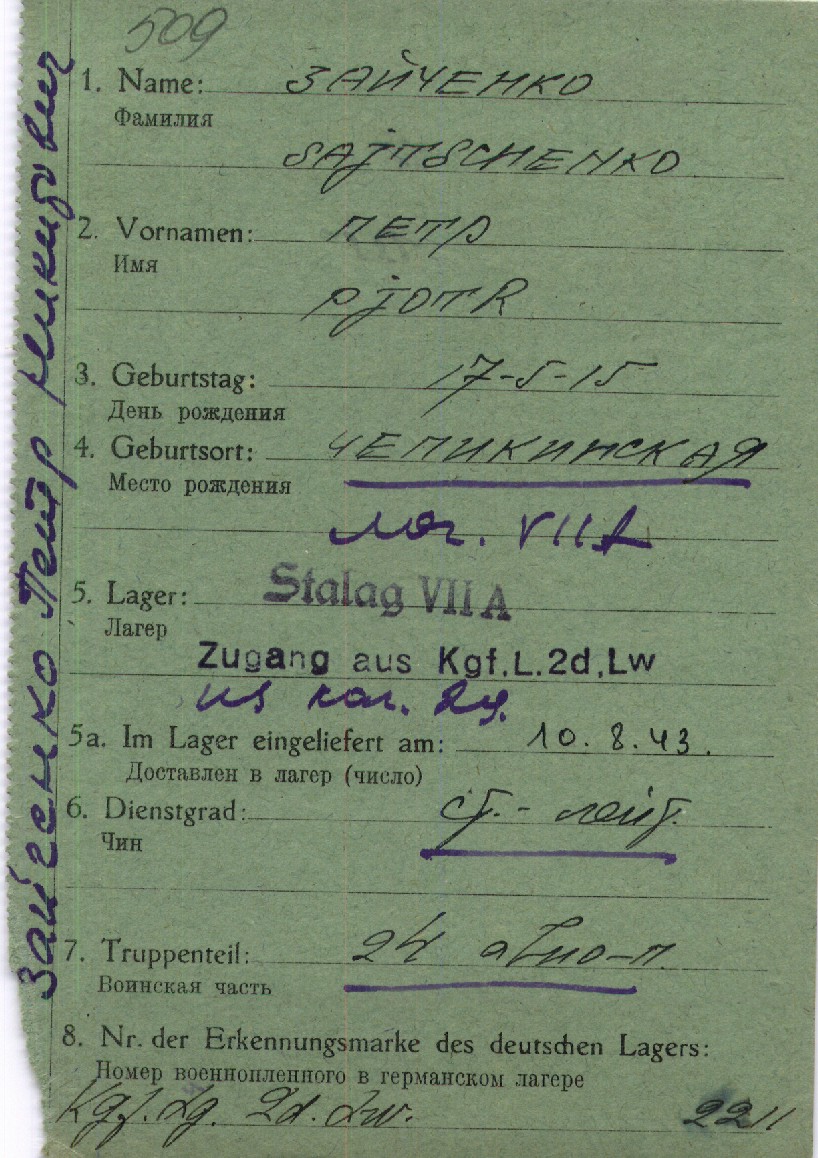 509
1. Name: ЗАЙЧЕНКО
Фамилия
SAJTSCHENKO
2. Vornamen: ПЕТР
Имя
PJOTR
3. Geburtstag: 17-5-15
День рождения
4. Geburtsort: ЧЕПИКИНСКАЯ
Место рождения
лаг. VIIA
5. Lager: Stalag VII A
Лагер
Zugang aus Kgf.L.2d.Lw
из лаг. 2д.
5a. Im Lager eingeliefert am: 10.8.43.
Доставлен в лагер (число)
6. Dienstgrad: ст.- лейт.
Чин
7. Truppenteil: 24
Воинская часть
8. Nr. der Erkennungsmarke des deutschen Lagers:
Номер военнопленного в германском лагере
Kgf. Lg. 2d. Lw. 2211
Зайченко Петр Никитович